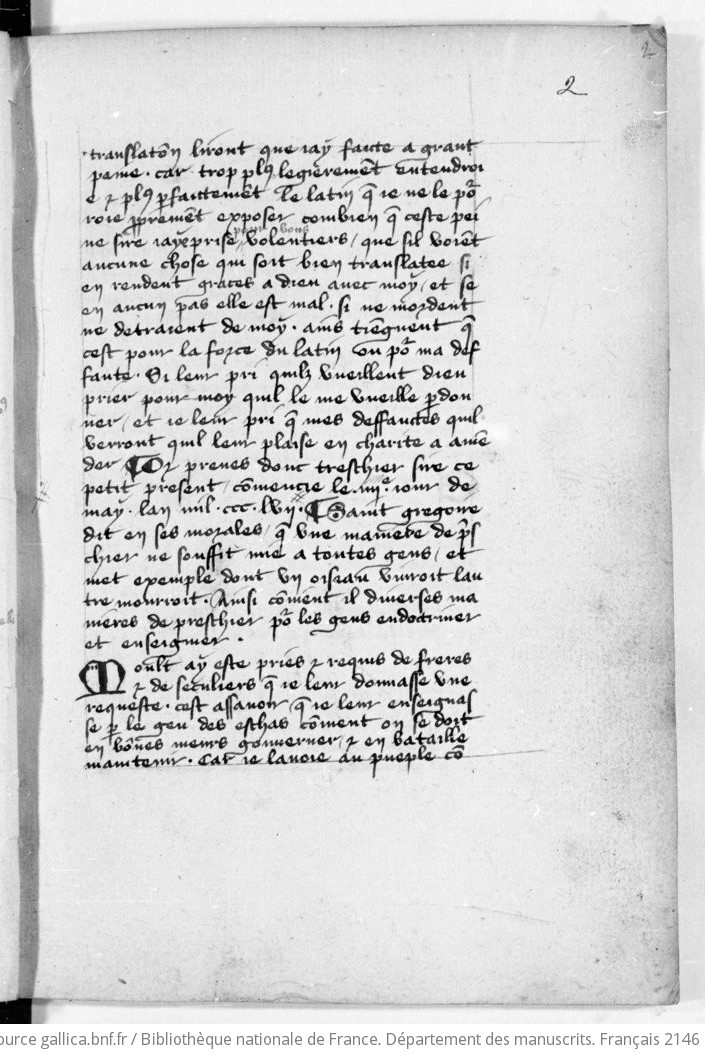 2
2
translaton liront que iay faicte a grant
peine · car trop plꝰ legierement entendroi
e ⁊ plꝰ ꝑfaictement le latin q̄ ie ne le po᷑
roie ꝓprement exposer combien q̄ ceste pei
ne sire iay eprise pour vous volentiers / que sil voient
aucune chose qui soit bien translatee si
en rendent graces a dieu auec moy / et se
en aucun pas elle est mal · si ne mordent
ne detraient de moy · ains tiēgnent q̄
cest pour la force du latin ou po᷑ ma def
faute · Si leur pri quilz vueillent dieu
prier pour moy quil le me vueille ꝑdon
ner / et ie leur pri q̄ mes deffautes quil
verront quil leur plaise en charite a amē
der ¶ Or prenes donc treschier sire ce
petit present / cōmencie le · iiii · e iour de
may · lan mil · ccc · lvii · ¶ Saint gregoire
dit en ses morales / q̄ vne maniere de p̄s
chier ne souffit mie a toutes gens / et
met exemple dont vn oisiau viuroit lau
tre mourroit · Ainsi cōment il diuerses ma
nieres de preschier po᷑ les gens endoctriner
et enseignier ·
Moult ay este pries ⁊ requis de freres
⁊ de seculiers q̄ ie leur donnasse vne
requeste · cest assauoir / q̄ ie leur enseignas
se ꝑ le geu des eschas cōment on se doit
en bōnes meurs gouuerner / ⁊ en bataille
maintenir · Car ie lauoie au pueple cō
ource gallica.bnf.fr / Bibliothèque nationale de France. Département des manuscrits. Français 2146